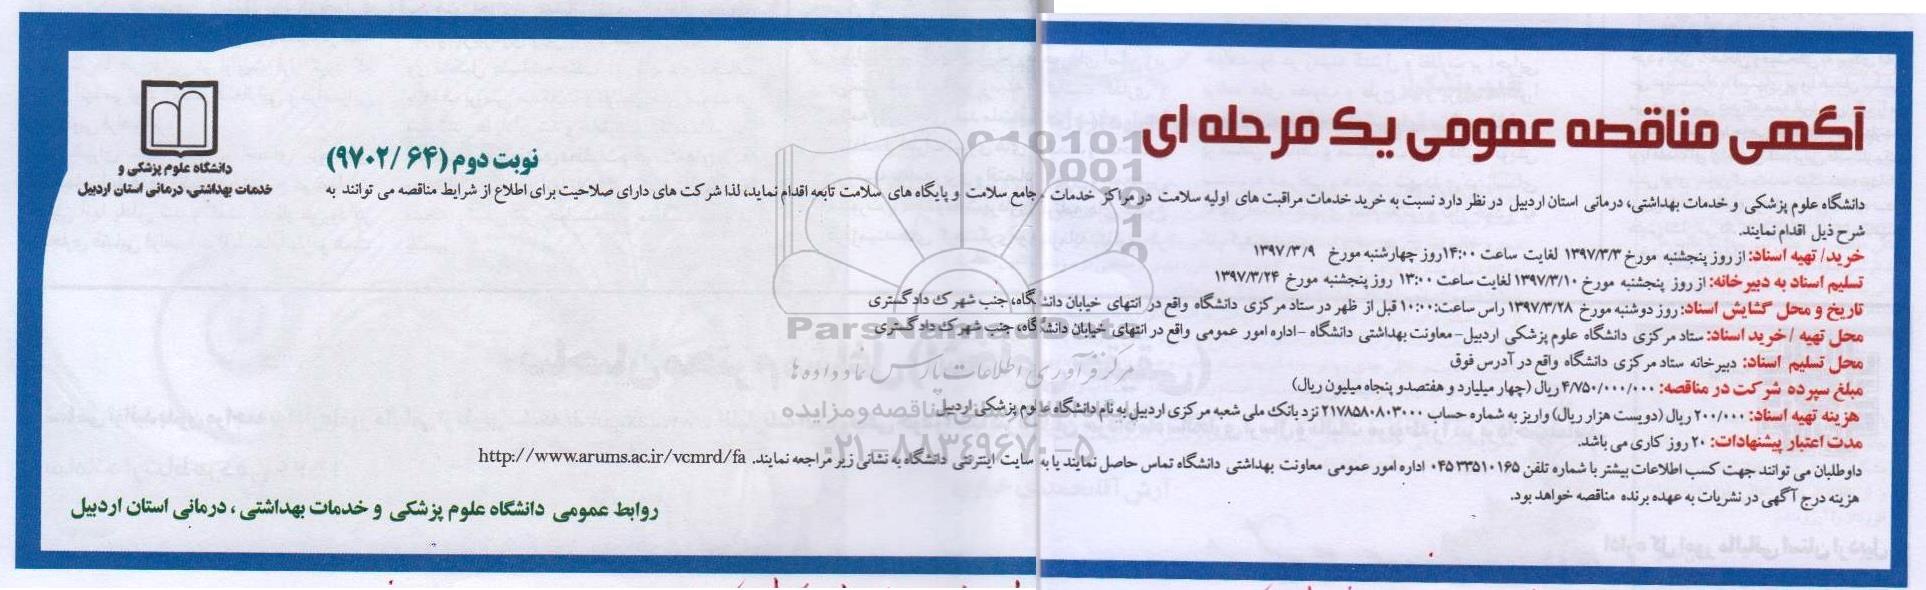 آگهی مناقصه عمومی یک مرحله ای
نوبت دوم (۹۷۰۲/۶۴)
دانشگاه علوم پزشکی و
خدمات بهداشتی، درمانی استان اردبیل
دانشگاه علوم پزشکی و خدمات بهداشتی، درمانی استان اردبیل در نظر دارد نسبت به خرید خدمات مراقبت های اولیه سلامت در مراکز خدمات جامع سلامت و پایگاه های سلامت تابعه اقدام نماید، لذا شرکت های دارای صلاحیت برای اطلاع از شرایط مناقصه می توانند به
شرح ذیل اقدام نمایند.
خرید/ تهیه اسناد: از روز پنجشنبه مورخ ۱۳۹۷/۳/۳ لغایت ساعت ۱۴:۰۰ روز چهارشنبه مورخ ۱۳۹۷/۳/۹
تسلیم اسناد به دبیرخانه: از روز پنجشنبه مورخ ۱۳۹۷/۳/۱۰ لغایت ساعت ۱۳:۰۰ روز پنجشنبه مورخ ۱۳۹۷/۳/۲۴
تاریخ و محل گشایش اسناد: روز دوشنبه مورخ ۱۳۹۷/۳/۲۸ راس ساعت: ۱۰:۰۰ قبل از ظهر در ستاد مرکزی دانشگاه واقع در انتهای خیابان دانشگاه، جنب شهرک دادگستری
محل تهیه /خرید اسناد: ستاد مرکزی دانشگاه علوم پزشکی اردبیل- معاونت بهداشتی دانشگاه -اداره امور عمومی واقع در انتهای خیابان دانشگاه، جنب شهرک دادگستری
محل تسلیم اسناد: دبیرخانه ستاد مرکزی دانشگاه واقع در آدرس فوق
مبلغ سپرده شرکت در مناقصه: ۴/۷۵۰/۰۰۰/۰۰۰ ریال (چهار میلیارد و هفتصدو پنجاه میلیون ریال)
هزینه تهیه اسناد: ۲۰۰/۰۰۰ ریال (دویست هزار ریال) واریز به شماره حساب ۲۱۷۸۵۸۰۸۰۳۰۰۰ نزد بانک ملی شعبه مرکزی اردبیل به نام دانشگاه علوم پزشکی اردبیل
مدت اعتبار پیشنهادات: ۲۰ روز کاری می باشد.
داوطلبان می توانند جهت کسب اطلاعات بیشتر با شماره تلفن ۰۴۵۳۳۵۱۰۱۶۵ اداره امور عمومی معاونت بهداشتی دانشگاه تماس حاصل نمایند یا به سایت اینترنتی دانشگاه به نشانی زیر مراجعه نمایند. http://www.arums.ac.ir/vcmrd/fa
هزینه درج آگهی در نشریات به عهده برنده مناقصه خواهد بود.
روابط عمومی دانشگاه علوم پزشکی و خدمات بهداشتی، درمانی استان اردبیل
ParsNamadData
مرکز فرآوری اطلاعات پارس نماد داده ها
۰۲۱-۸۸۳۴۹۶۷۰-۵